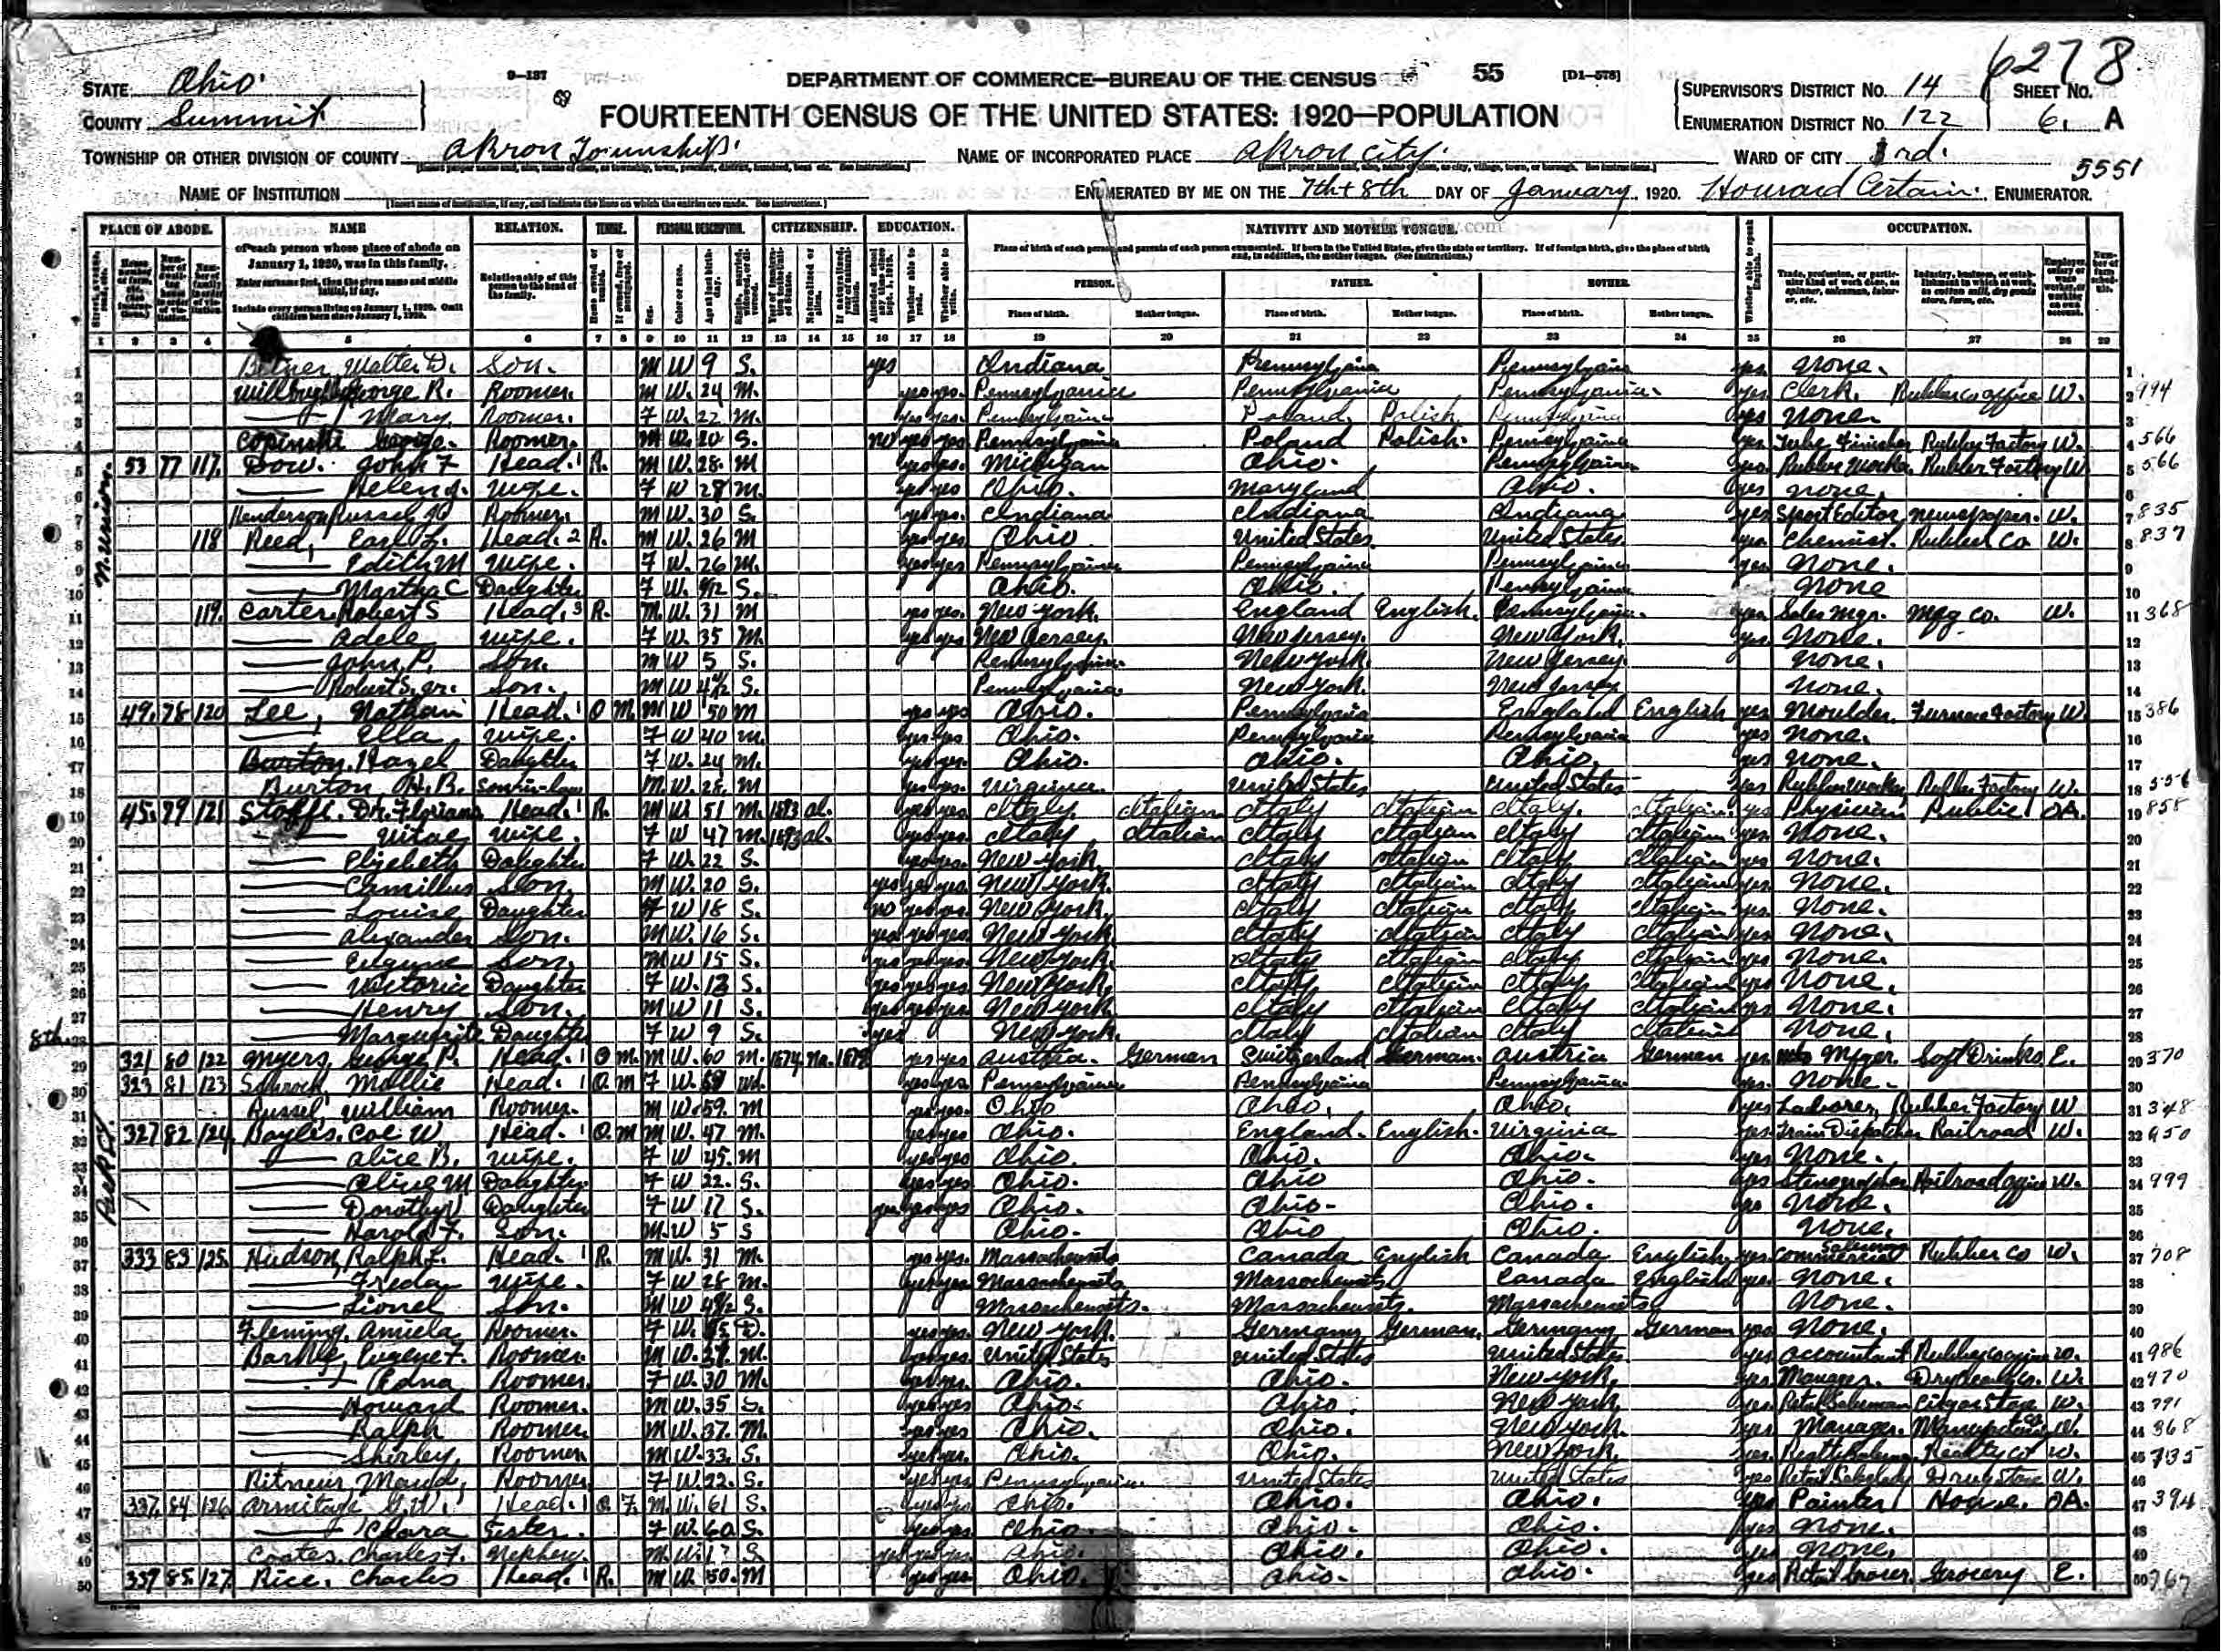 6278
STATE Ohio. 9-137 DEPARTMENT OF COMMERCE—BUREAU OF THE CENSUS 55 [D1-578] SUPERVISOR'S DISTRICT No. 14 SHEET No.
COUNTY Summit FOURTEENTH CENSUS OF THE UNITED STATES: 1920—POPULATION ENUMERATION DISTRICT No. 122 6. A
TOWNSHIP OR OTHER DIVISION OF COUNTY Akron Township. NAME OF INCORPORATED PLACE Akron City. WARD OF CITY 3rd. 5551
NAME OF INSTITUTION ENUMERATED BY ME ON THE 7th + 8th DAY OF January, 1920. Howard Certain. ENUMERATOR.
PLACE OF ABODE. NAME RELATION. TENURE. PERSONAL DESCRIPTION. CITIZENSHIP. EDUCATION. NATIVITY AND MOTHER TONGUE. OCCUPATION.
of each person whose place of abode on January 1, 1920, was in this family.
Enter surname first, then the given name and middle initial, if any.
Include every person living on January 1, 1920. Omit children born since January 1, 1920.
Relationship of this person to the head of the family.
Place of birth of each person and parents of each person enumerated. If born in the United States, give the state or territory. If of foreign birth, give the place of birth and, in addition, the mother tongue. (See Instructions.)
PERSON. FATHER. MOTHER.
Place of birth. Mother tongue. Place of birth. Mother tongue. Place of birth. Mother tongue.
1 2 3 4 5 6 7 8 9 10 11 12 13 14 15 16 17 18 19 20 21 22 23 24 25 26 27 28 29
1 Walter D. Son. M W 9 S. yes Indiana Pennsylvania Pennsylvania yes None. 1
2 George R. Roomer. M W. 24 M. yes yes. Pennsylvania Pennsylvania Pennsylvania. yes Clerk. Rubber Co office W. 2 994
3 — Mary. Roomer. F W. 22 M. yes yes. Pennsylvania Poland Polish Pennsylvania yes None 3
4 Copinski George. Roomer. M W. 20 S. no yes yes Pennsylvania Poland Polish. Pennsylvania yes Tube Finisher Rubber Factory W. 4 566
5 53 77 117. Dow. John F Head. 1 R. M W. 28. M yes yes. Michigan Ohio. Pennsylvania yes. Rubber Worker Rubber Factory W 5 566
6 — Helen J. Wife. F W 28 M. yes yes Ohio. Maryland Ohio. yes None. 6
7 Henderson Russel Roomer. M W. 30 S. yes yes. Indiana Indiana Indiana yes Sport Editor Newspaper. W. 7 835
8 118 Reed, Earl Head. 2 R. M W. 26 M yes yes Ohio United States United States yes. Chemist. Rubber Co W. 8 837
9 — Edith M Wife. F W. 26 M. yes yes Pennsylvania Pennsylvania Pennsylvania yes None. 9
10 — Martha C Daughter F W. S. Ohio. Ohio. Pennsylvania None 10
11 119. Carter, Robert S Head. 3 R. M. W. 31 M yes yes. New York. England English. Pennsylvania. yes Sales Mgr. Mfg Co. W. 11 368
12 — Adele Wife. F W. 35 M. yes yes New Jersey. New Jersey. New York. yes. None. 12
13 — John P. Son. M W 5 S. Pennsylvania. New York. New Jersey. None. 13
14 — Robert S. Jr. Son. M W S. Pennsylvania New York. New Jersey None. 14
15 49. 78 120 Lee, Nathan Head. 1 O M. M W 50 M yes yes Ohio. Pennsylvania England English yes Moulder. Furnace Factory W. 15 386
16 — Ella Wife. F W 40 M. yes yes Ohio. Pennsylvania Pennsylvania yes None. 16
17 Burton, Hazel Daughter F W. 24 M. yes yes. Ohio. Ohio. Ohio. yes None. 17
18 Burton, H. B. Son-in-law M. W. 28. M yes yes. Virginia. United States United States yes Rubber Worker Rubber Factory W. 18 556
19 45. 79 121 Dr. Floriano Head. 1 R. M W. 51 M. 1893 al. yes yes Italy. Italian Italy Italian Italy. Italian. yes Physician Public OA. 19 858
20 — Wife. F W 47 M. 1893 al. yes yes. Italy Italian Italy Italian Italy Italian yes. None. 20
21 — Elizabeth Daughter F W. 22 S. yes yes. New York. Italy Italian Italy Italian yes None. 21
22 — Camillus Son. M W. 20 S. yes yes yes. New York. Italy Italian Italy Italian yes None. 22
23 — Louise Daughter F W 18 S. no yes yes. New York. Italy Italian Italy Italian yes. None. 23
24 — Alexander Son. M W. 16 S. yes yes yes. New York. Italy Italian Italy Italian yes None. 24
25 — Eugene Son. M W 15 S. yes yes yes. New York. Italy Italian Italy Italian yes None. 25
26 — Victoria Daughter F W. 13 S. yes yes yes New York. Italy Italian Italy Italian yes None. 26
27 — Henry Son. M W 11 S. yes yes yes New York. Italy Italian Italy Italian yes None. 27
8th 28 — Marguerite Daughter F W 9 S. yes New York. Italy Italian Italy Italian None. 28
29 321 80 122 Myers, George P. Head. 1 O M. M W. 60 M. 1874 Na. yes yes Austria. German Switzerland German. Austria German yes Mfger. Soft Drinks E. 29 370
30 323 81 123 Schrock, Mollie Head. 1 O. M F W. Wd. yes yes. Pennsylvania Pennsylvania Pennsylvania yes. None. 30
31 Russel, William Roomer. M W. 59. M yes yes. Ohio Ohio. Ohio. yes Laborer, Rubber Factory W 31 348
32 327 82 124. Bayles, W Head. 1 O. M M W. 47 M. yes yes Ohio. England. English. Virginia yes. Train Dispatcher Railroad W. 32 950
33 — Alice B. Wife. F W 45. M yes yes Ohio. Ohio. Ohio. yes None. 33
34 — Olive M Daughter. F W 22. S. yes yes Ohio. Ohio Ohio. yes Stenographer Railroad office W. 34 999
35 — Dorothy Daughter F W 17 S. yes yes yes Ohio. Ohio. Ohio. yes None. 35
36 — Harold F. Son. M. W 5 S Ohio. Ohio Ohio. None. 36
37 333 83 125. Hudson, Ralph L. Head. 1 R. M W. 31 M. yes yes. Massachusetts Canada English Canada English. yes Commercial Salesman Rubber Co W. 37 708
38 — Freda Wife. F W 28 M. yes yes. Massachusetts Massachusetts Canada English yes None. 38
39 — Lionel Son. M W S. Massachusetts. Massachusetts. Massachusetts None. 39
40 Fleming, Amiela Roomer. F W. D. yes yes. New York. Germany German. Germany German yes None. 40
41 Eugene F. Roomer. M W. M. yes yes. United States United States United States. yes Accountant Rubber Co office W. 41 986
42 — Edna Roomer. F W. 30 M. yes yes. Ohio. Ohio. New York. yes Manager. W. 42 420
43 — Howard Roomer. M W. 35 S. yes yes Ohio. Ohio. New York yes Retail Salesman Cigar Store W. 43 791
44 — Ralph Roomer M W. 37. M. yes yes Ohio. Ohio. New York. yes Manager. W. 44 368
45 — Shirley, Roomer M W. 33. S. yes yes. Ohio. Ohio. New York. yes. Realty Salesman Realty Co W. 45 735
46 Maud, Roomer. F W. 22. S. yes yes Pennsylvania. United States United States yes Retail Saleslady Drug Store W. 46
47 337. 84 126 Armitage G. W. Head. 1 O. F. M. W. 61 S. yes yes Ohio. Ohio. Ohio. yes Painter House. OA. 47 394
48 — Clara Sister. F W. 60 S. yes yes Ohio. Ohio. Ohio. yes None. 48
49 Coates, Charles F. Nephew. M. W. 17 S yes yes yes. Ohio. Ohio. Ohio. yes None. 49
50 339 85. 127. Rice, Charles Head. 1 R. M W. 50. M yes yes. Ohio. Ohio. Ohio. yes Retail Grocer. Grocery E. 50 767
N. Union.
Park St.